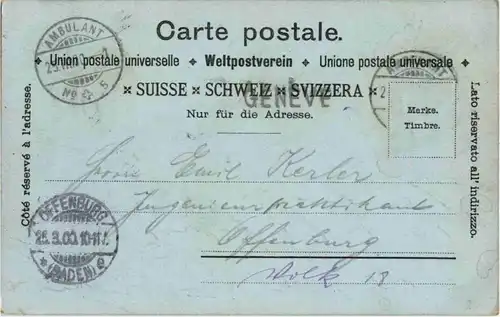 Carte postale.
Union postale universelle ✦ Weltpostverein ✦ Unione postale universale
SUISSE × SCHWEIZ × SVIZZERA ×
GENÈVE
Nur für die Adresse.
Côté réservé à l'adresse.
Lato riservato all' indirizzo.
Marke.
Timbre.
AMBULANT
No
Herrn Emil Kerler
Ingenieurpraktikant
Offenburg
OFFENBURG
25.3.00.10-11V.
* (BADEN) e